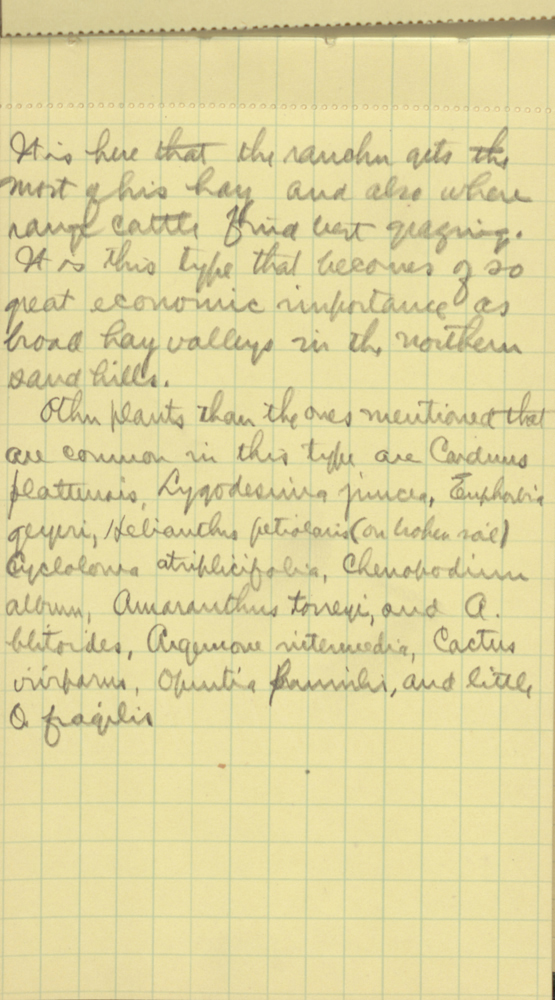 It is here that the rancher gets the
most of his hay and also where
range cattle find best grazing.
It is this type that becomes of so
great economic importance as
broad hay valleys in the northern
sand hills.
Other plants than the ones mentioned that
are common in this type are Carduus
plattensis, Lygodesmia juncea, Euphorbia
geyeri, Helianthus petiolaris (on broken soil)
Cycloloma atriplicifolia, Chenopodium
album, Amaranthus torreyi, and A.
blitoides, Argemone intermedia, Cactus
viviparus, Opuntia and little
O fragilis